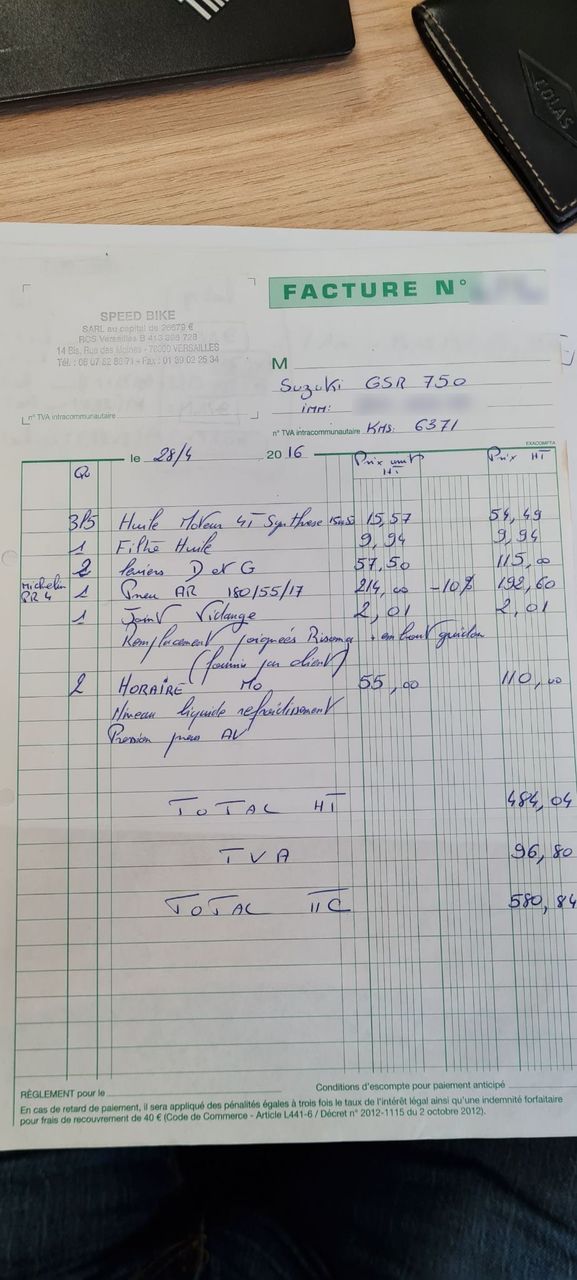 COLAS
FACTURE N°
SPEED BIKE
SARL au capital de 26679 €
RCS Versailles B 413 898 728
14 Bis, Rue des Moines - 78000 VERSAILLES
Tél. : 06 07 52 86 71 - Fax : 01 39 02 25 34
M
Suzuki GSR 750
imm:
n° TVA intracommunautaire
n° TVA intracommunautaire KMS: 6371
EXACOMPTA
le 28/4 2016
Q Prix unit HT Prix HT
3P5 Huile Moteur 4T Synthese 15,57 54,49
1 Filtre Huile 9,94 9,94
2 D et G 57,50 115,00
Michelin PR4 1 Pneu AR 180/55/17 214,00 -10% 192,60
1 Joint Vidange 2,01 2,01
Remplacement poignées Rizoma + embout guidon
(fournie par client)
2 HORAIRE MO 55,00 110,00
Niveau liquide refroidissement
Pression pneu AV
TOTAL HT 484,04
TVA 96,80
TOTAL TTC 580,84
RÈGLEMENT pour le Conditions d'escompte pour paiement anticipé
En cas de retard de paiement, il sera appliqué des pénalités égales à trois fois le taux de l'intérêt légal ainsi qu'une indemnité forfaitaire
pour frais de recouvrement de 40 € (Code de Commerce - Article L441-6 / Décret n° 2012-1115 du 2 octobre 2012).